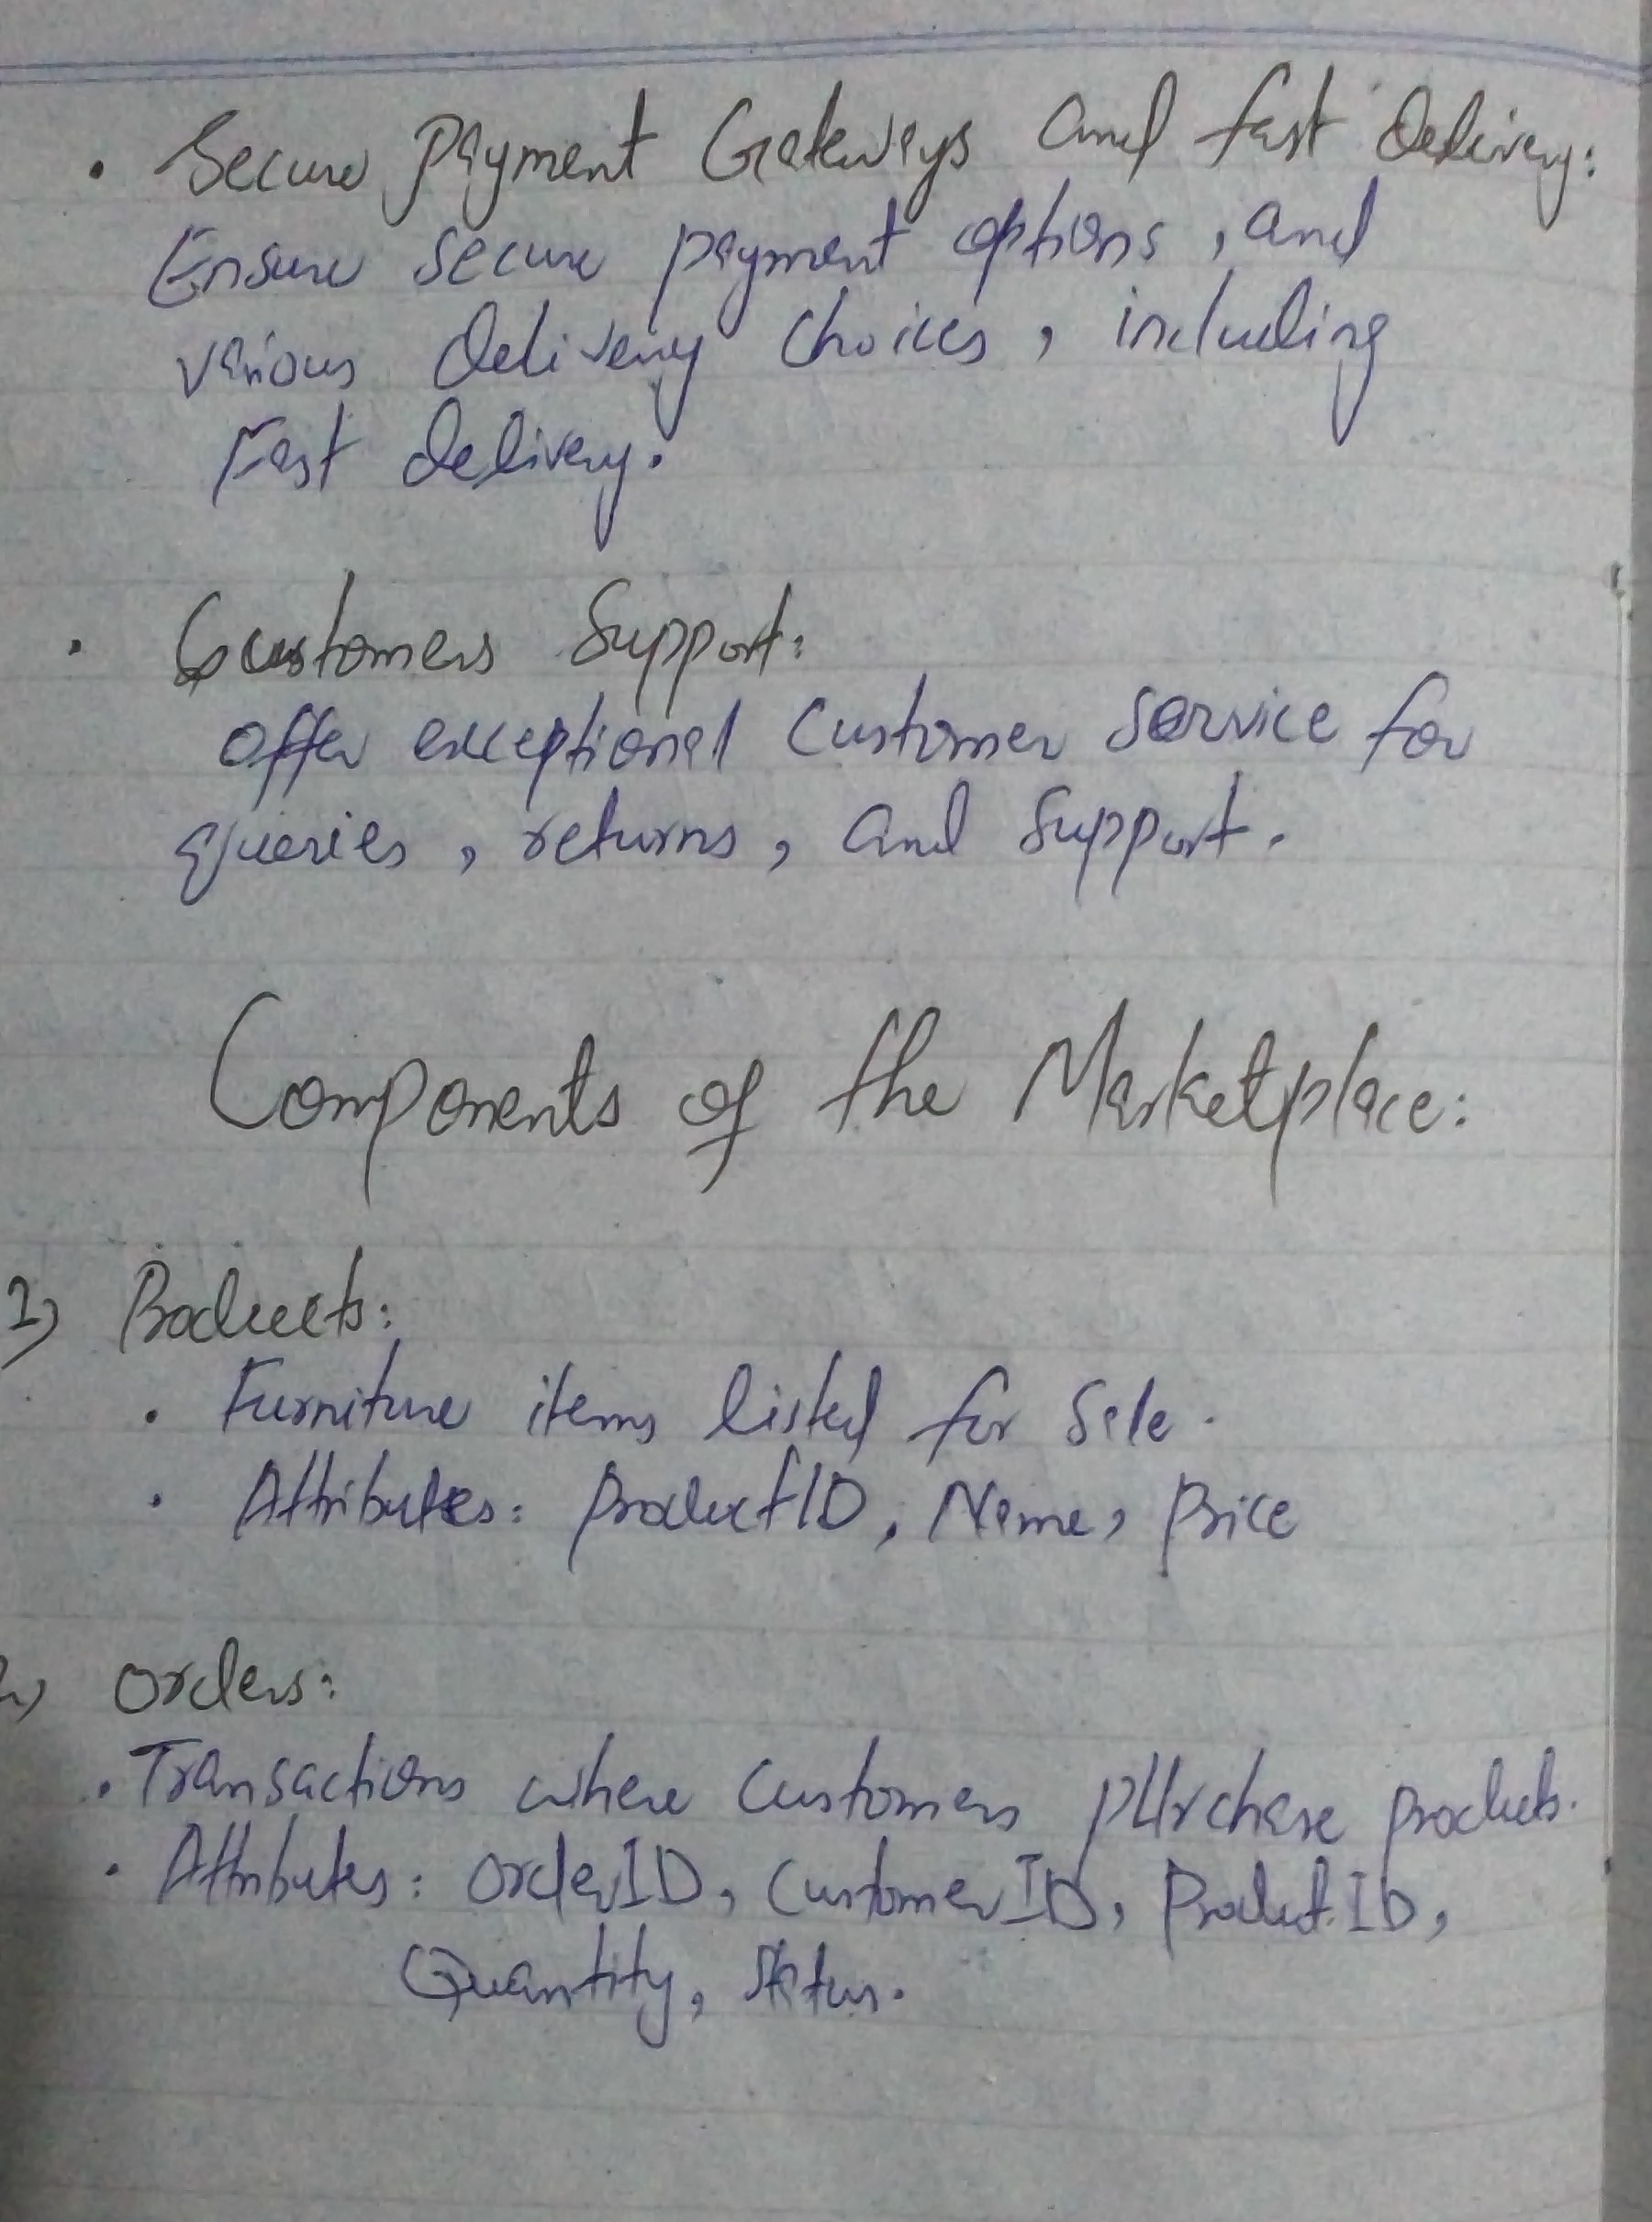 • Secure Payment Gateways and fast Delivery:
Ensure secure payment options, and
various delivery choices, including
Fast delivery.
• Customers Support:
offer exceptional customer service for
queries, returns, and support.
Components of the Marketplace:
1) Products:
• Furniture items listed for sale.
• Attributes: ProductID, Name, Price
2) Orders:
• Transactions where customers purchase products.
• Attributes: OrderID, CustomerID, ProductID,
Quantity, Status.